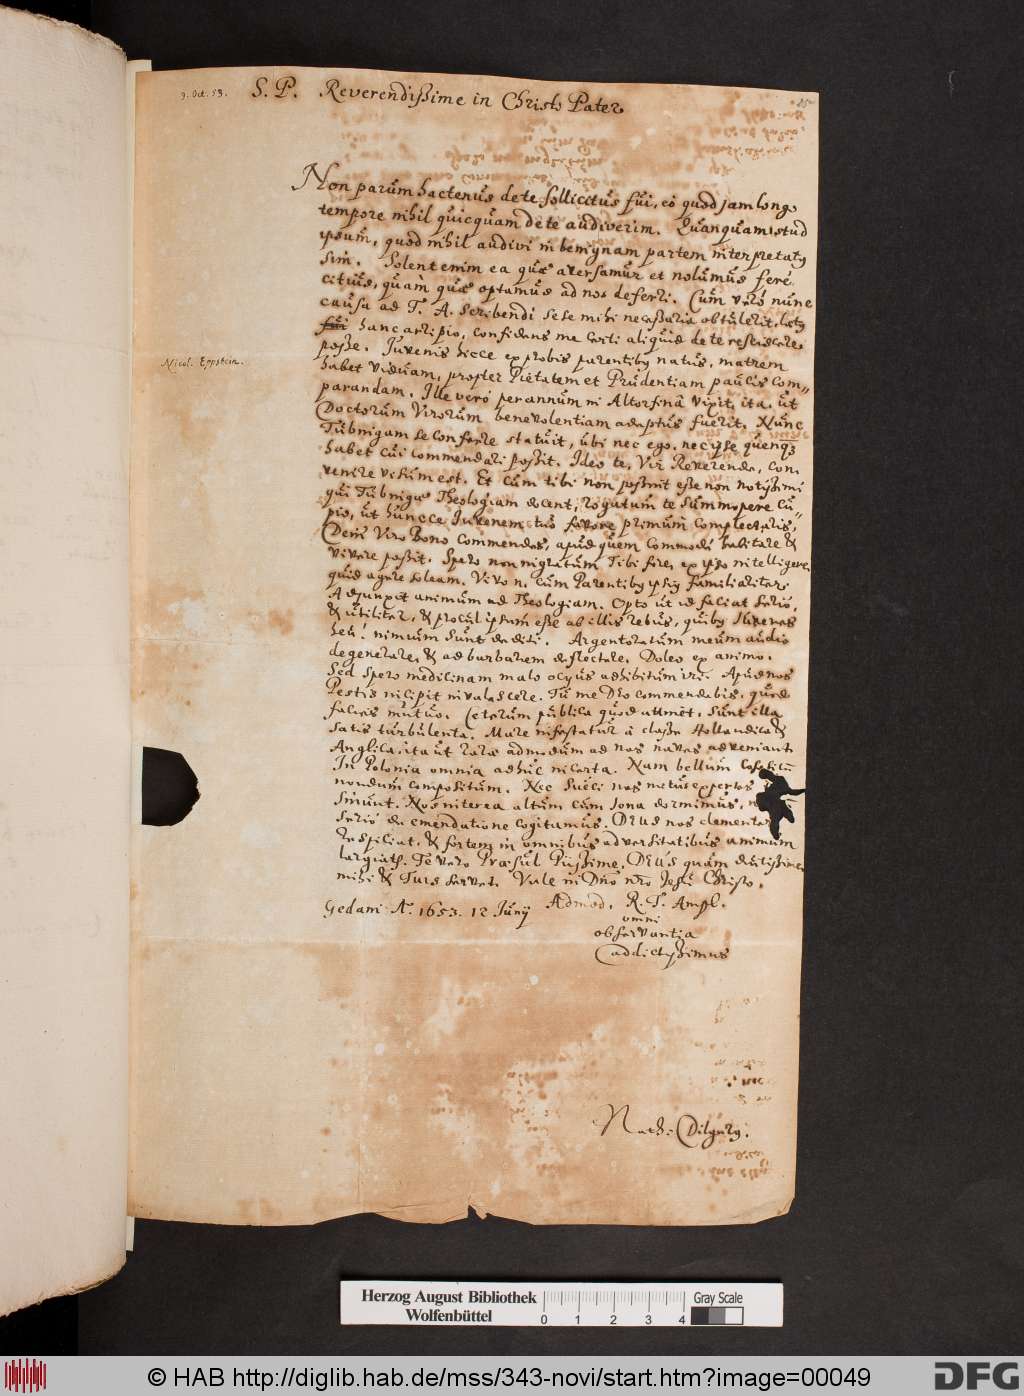 9. Oct. 53.
S. P. Reverendissime in Christo Pater
25
Non parùm hactenùs de te sollicitus fui, eò quod jam longo
tempore nihil quicquam de te audiverim. Quanquam istud
ipsum, quod nihil audivi in benignam partem interpretatus
sim. Solent enim ea quæ aversamur et nolumus ferè
citius, quàm quæ optamus ad nos deferri. Cùm verò nunc
causa ad T. A. scribendi sese mihi necessaria obtulerit, lætus
fui hanc arripio, confidens me certi aliquid de te resciscere
posse. Juvenis hicce ex probis parentibus natus, matrem
Nicol. Eppstein.
habet viduam, propter Pietatem et Prudentiam paucis com=
parandam. Ille verò per annum in Altorfinâ vixit, ita, ut
Doctorum Virorum benevolentiam adeptus fuerit. Nunc
Tubingam se conferre statuit, ubi nec ego, nec ipse quenq;
habet cui commendari possit. Ideo te, Vir Reverende, con
venire visum est. Et cùm tibi non possint esse non notissimi
qui Tubingæ Theologiam docent, rogatum te summopere cu=
pio, ut huncce Juvenem tuo favore primùm complectaris,
Dein Viro Bono commendes, apud quem commodè habitare &
vivere possit. Spero non ingratum Tibi fore, ex ipso intelligere
quid agere soleam. Vivo n. cum Parentibus ipsius familiariter.
Adjunxit animum ad Theologiam. Opto ut id faciat seriò,
& utiliter, & procul ipsum esse ab illis rebus, quibus Juvenes
heu! nimium sunt dediti. Argentoratum meum audio
degenerare, & ad barbariem deflectere. Doleo ex animo.
Sed spero medicinam malo ocyus adhibitum iri. Apud nos
Pestis incipit invalescere. Tu me Deo commendabis, quod
facies mutuò. Ceterum publica quod attinet, sunt illa
satis turbulenta. Mare infestatur à classe Hollandica &
Anglica, ita ut raræ admodum ad nos naves adveniant.
In Polonia omnia adhuc incerta. Nam bellum Cosaticum
nondum compositum. Nec Sueci nos metus expertes
sinunt. Nos interea altum cum Jona dormimus,
seriò de emendatione cogitamus. DEUS nos clementer
respiciat, & fortem in omnibus adversitatibus animum
largiatur. Te verò Præsul Piissime, DEUS quàm diutissimè
mihi & Tuis servet. Vale in Dno nro Jesu Christo.
Gedani A. 1653. 12 Junij
Admod. R. T. Ampl.
omni
observantia
addictissimus
Nath: Dilgerus.
Herzog August Bibliothek
Wolfenbüttel
0 1 2 3 4
Gray Scale
© HAB http://diglib.hab.de/mss/343-novi/start.htm?image=00049
DFG